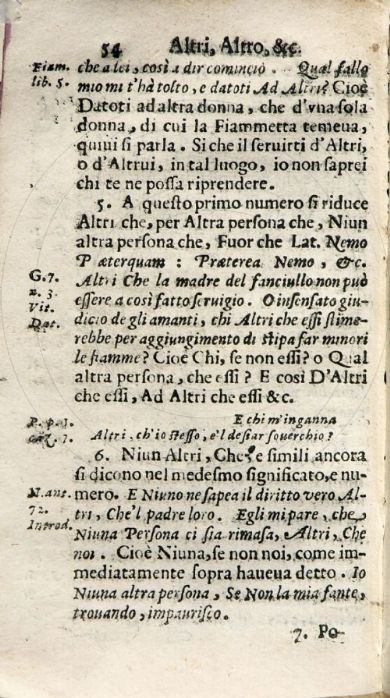 54 Altri, Altro, &c.
Fiam. che a lei, così a dir cominciò. Qual fallo
lib. 5. mio mi t'hà tolto, e datoti Ad Altri? Cioè
Datoti ad altra donna, che d'vna sola
donna, di cui la Fiammetta temeua,
quiui si parla. Si che il seruirti d'Altri,
o d'Altrui, in tal luogo, io non saprei
chi te ne possa riprendere.
5. A questo primo numero si riduce
Altri che, per Altra persona che, Niun
altra persona che, Fuor che Lat. Nemo
Præterquam: Præterea Nemo, &c.
G. 7. Altri Che la madre del fanciullo non può
n. 3. essere a così fatto seruigio. O insensato giu-
Vit. dicio de gli amanti, chi Altri che essi stime-
Dat. rebbe per aggiungimento di stipa far minori
le fiamme? Cioè Chi, se non essi? o Qual
altra persona, che essi? E così D'Altri
che essi, Ad Altri che essi &c.
P. p. 1. E chi m'inganna
7. Altri, ch'io stesso, e'l desiar souerchio?
6. Niun Altri, Che, e simili ancora
si dicono nel medesmo significato, e nu-
N. ant. mero. E Niuno ne sapea il diritto vero Al-
72. tri, Che'l padre loro. Egli mi pare, che
Introd. Niuna Persona ci sia rimasa, Altri, Che
noi. Cioè Niuna, se non noi, come im-
mediatamente sopra haueua detto. Io
Niuna altra persona, Se Non la mia fante,
trouando, impaurisco.
7. Po-